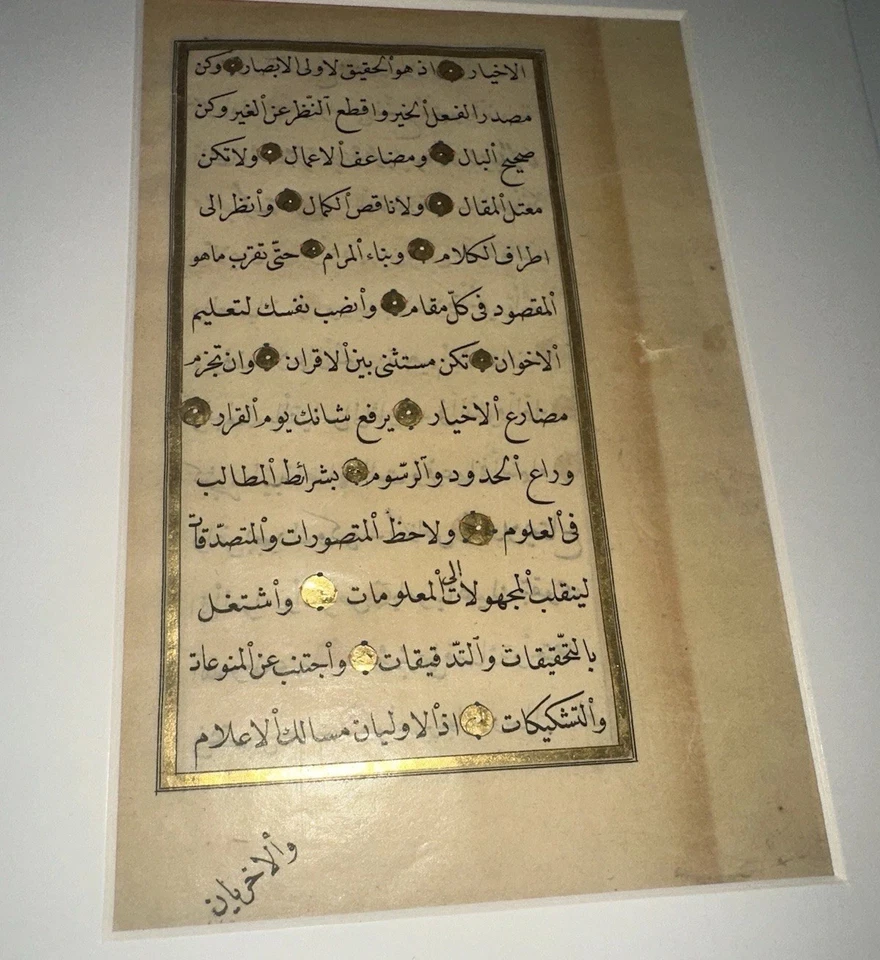 الاخيار اذ هو ٱلحقيق لاولى الابصار وكن
مصدر الفعل ٱلخير واقطع ٱلنّظر عن ٱلغير وكن
صحيح ٱلبال ومضاعف ٱلاعمال ولا تكن
معتل ٱلمقال ولا ناقص ٱلكمال وٱنظر الى
اطراف ٱلكلام وبناء ٱلمرام حتّى تقرّب ما هو
ٱلمقصود فى كلّ مقام وٱنصب نفسك لتعليم
ٱلاخوان تكن مستثنى بين ٱلاقران وان تجزم
مضارع ٱلاخيار يرفع شانك يوم ٱلقرار
وراع ٱلحدود وٱلرّسوم بشرائط ٱلمطالب
فى ٱلعلوم ولاحظ ٱلمتصورات وٱلمتصدّقات
لينقلب ٱلمجهولات الى ٱلمعلومات وٱشتغل
بالتّحقيقات وٱلتّدقيقات وٱجتنب عن ٱلمنوعات
وٱلتشكيكات اذ ٱلاوليان مسالك ٱلاعلام
وٱلاخريان